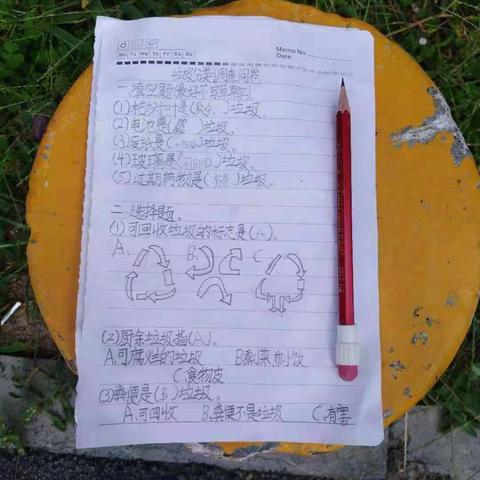 Memo No.
Mo Tu We Th Fr Sa Su
Date
垃圾分类调查问卷
一、填空题(最好不写草字)
(1)枯沙叶是( )垃圾。
(2)电池是( )垃圾。
(3)废纸是( )垃圾。
(4)玻璃是(可回收)垃圾。
(5)过期药物是(有害)垃圾。
二、选择题。
(1)可回收垃圾的标志是(A)。
A、 B、 C
(2)厨余垃圾指(A)。
A.可腐烂的垃圾 B.剩菜,剩饭
C.食物皮
(3)粪便是(B)垃圾。
A.可回收 B.粪便不是垃圾 C.有害